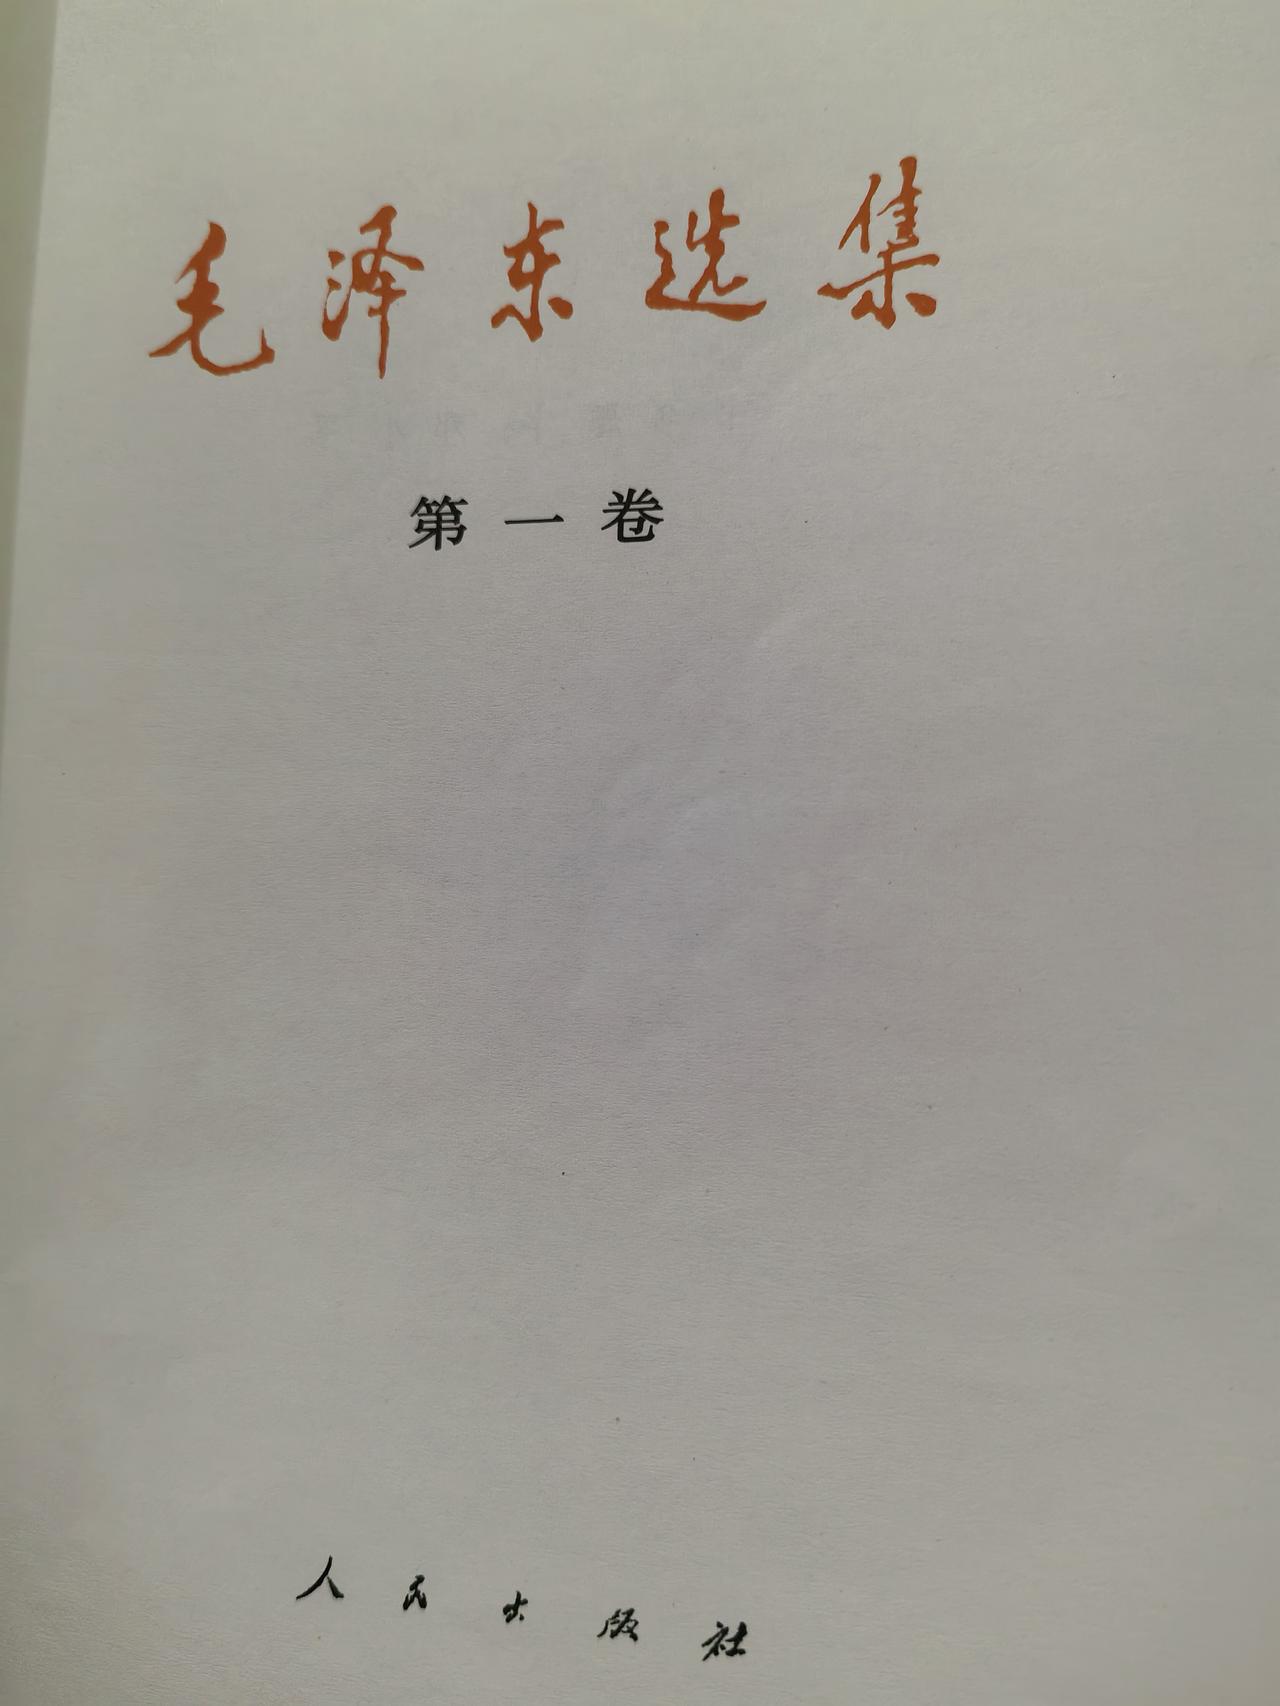 毛泽东选集
第一卷
人民出版社